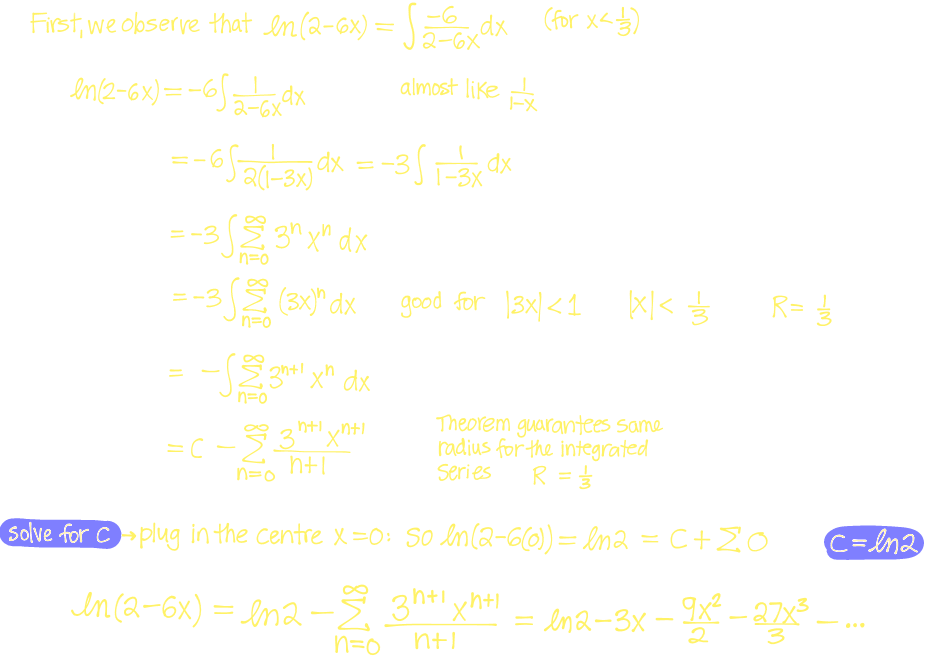 First, we observe that ln(2-6x) = ∫ -6/(2-6x) dx (for x<1/3)
ln(2-6x) = -6∫ 1/(2-6x) dx almost like 1/(1-x)
= -6∫ 1/(2(1-3x)) dx = -3∫ 1/(1-3x) dx
= -3∫ ∑_{n=0}^{∞} 3^n x^n dx
= -3∫ ∑_{n=0}^{∞} (3x)^n dx good for |3x|<1 |x|< 1/3 R= 1/3
= -∫ ∑_{n=0}^{∞} 3^{n+1} x^n dx
= C - ∑_{n=0}^{∞} 3^{n+1} x^{n+1}/(n+1)
Theorem guarantees same
radius for the integrated
Series R = 1/3
solve for C → plug in the centre x=0: So ln(2-6(0)) = ln2 = C+∑0 C=ln2
ln(2-6x) = ln2 - ∑_{n=0}^{∞} 3^{n+1} x^{n+1}/(n+1) = ln2-3x - 9x²/2 - 27x³/3 - ...